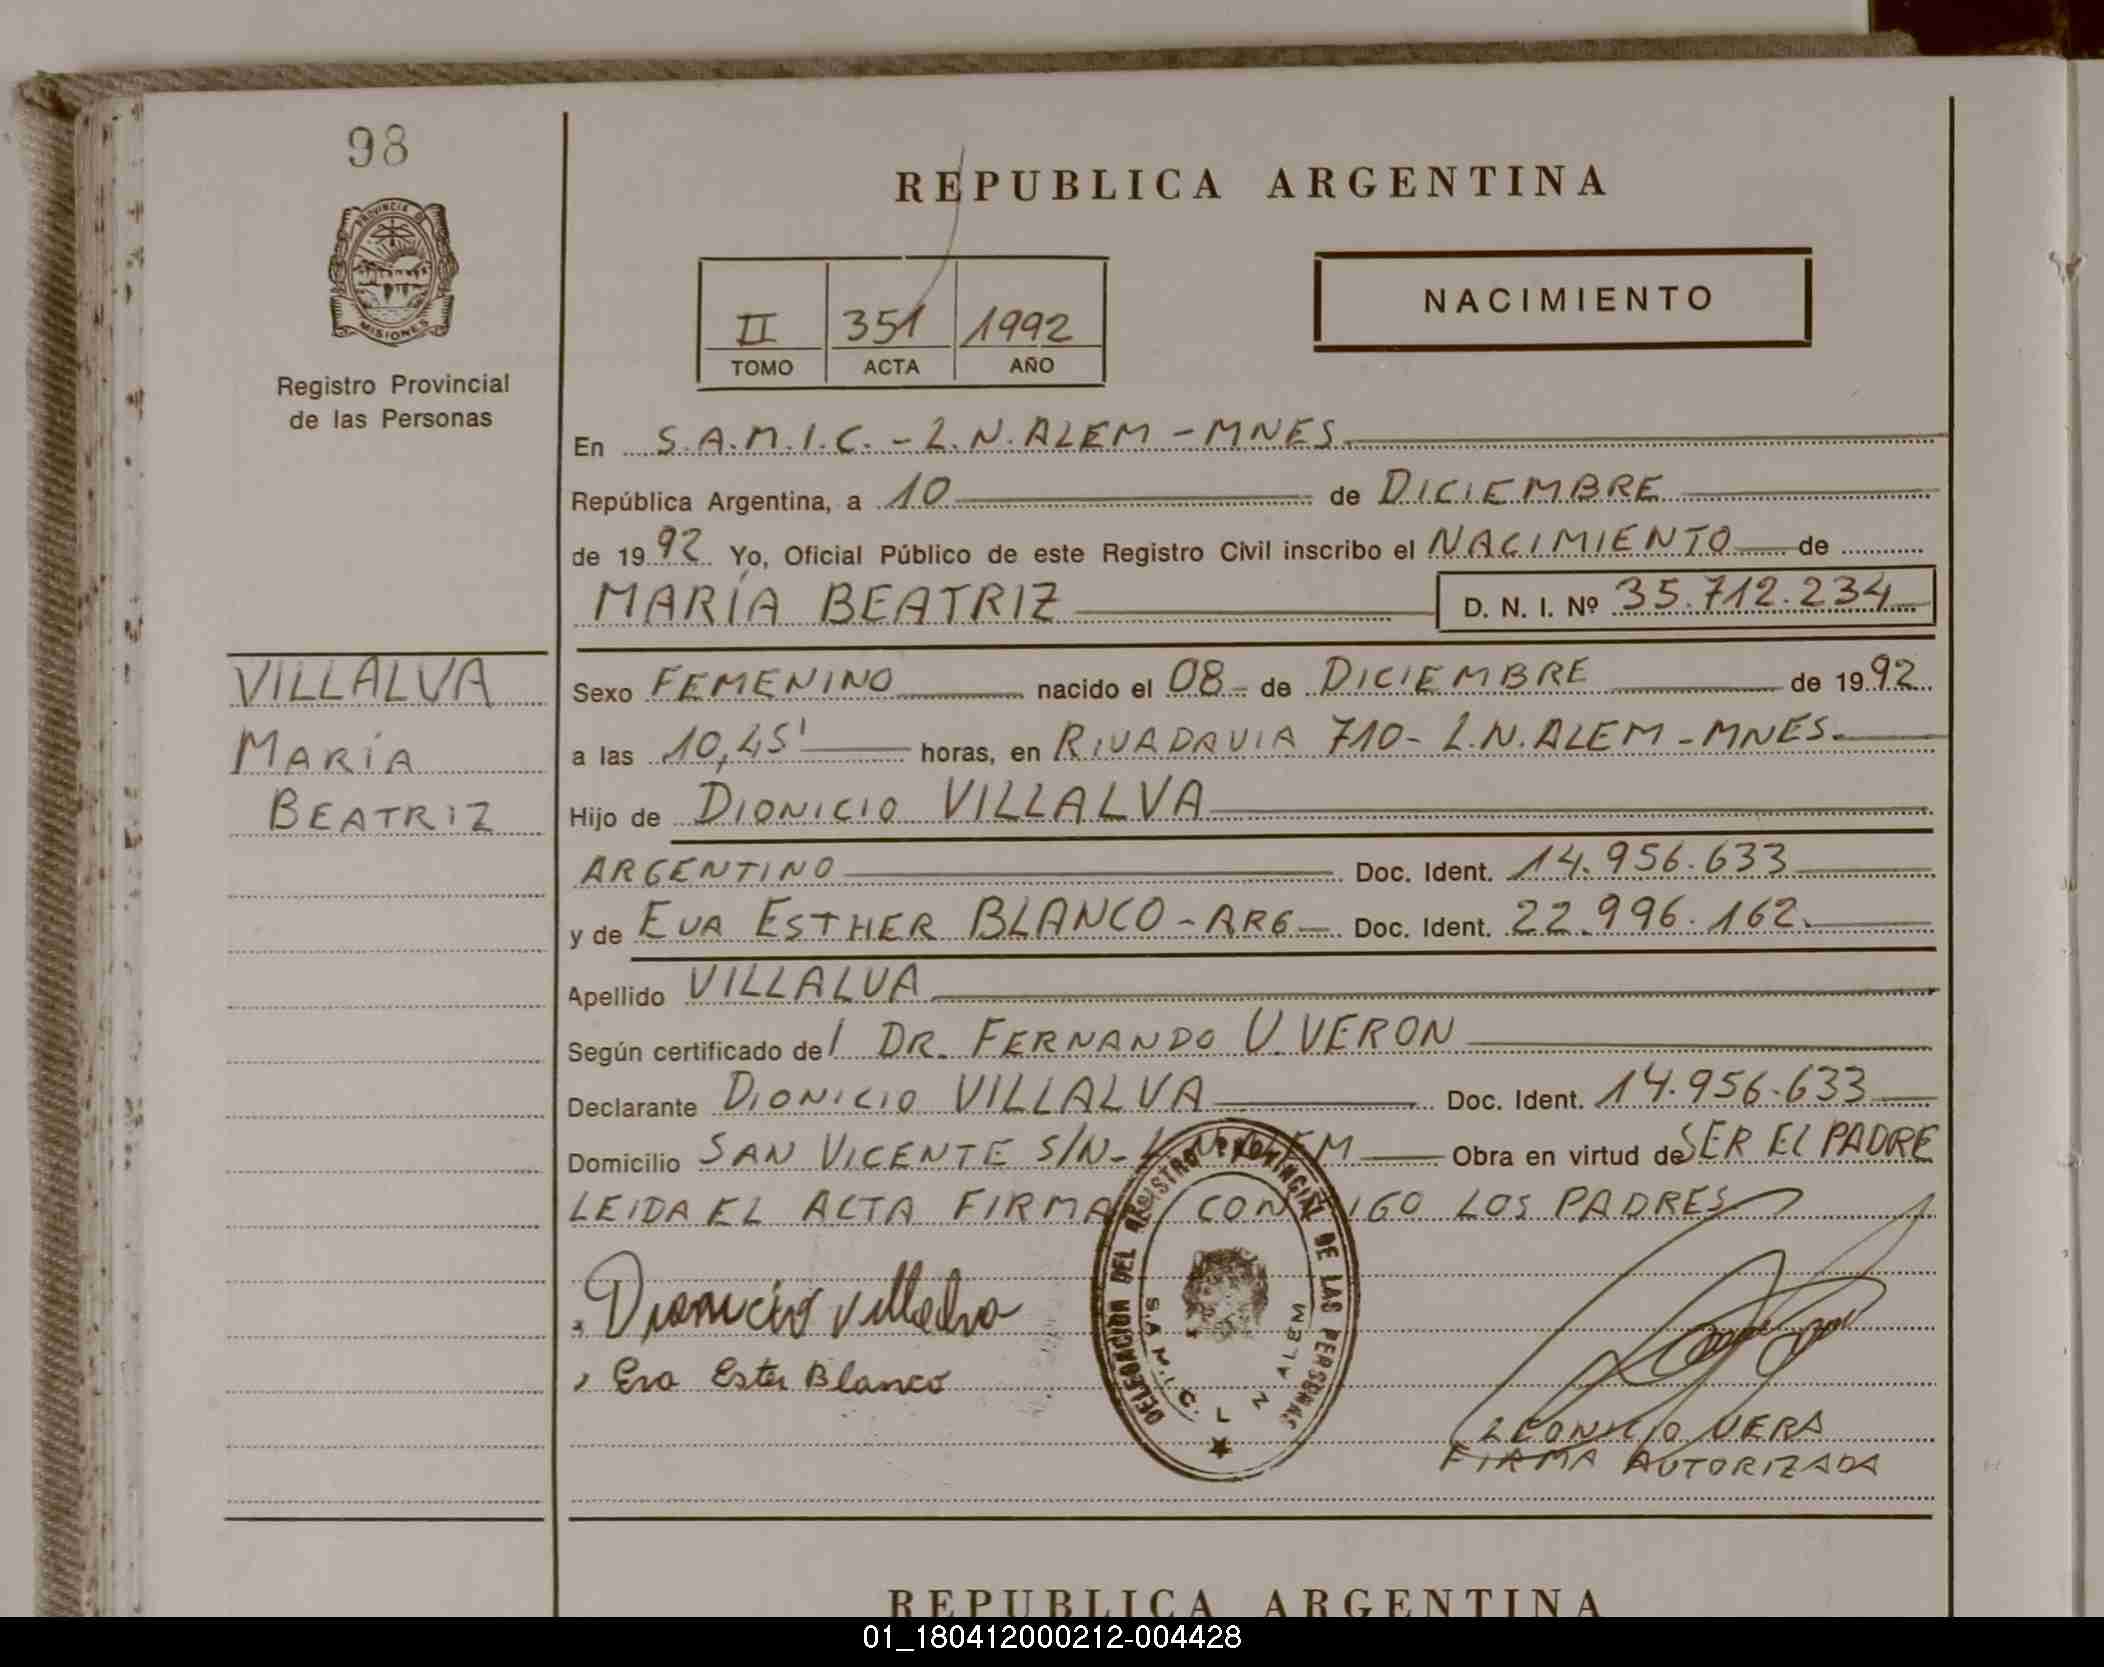 98
PROVINCIA D
MISIONES
Registro Provincial
de las Personas
REPUBLICA ARGENTINA
II 351 1992
TOMO ACTA AÑO
NACIMIENTO
En S.A.M.I.C. - L.N.ALEM - MNES.
República Argentina, a 10 de DICIEMBRE
de 1992 Yo, Oficial Público de este Registro Civil inscribo el NACIMIENTO de
MARÍA BEATRIZ D. N. I. Nº 35.712.234
VILLALVA
MARÍA
BEATRIZ
Sexo FEMENINO nacido el 08 - de DICIEMBRE de 1992
a las 10,45' horas, en RIVADAVIA 710 - L.N.ALEM - MNES.
Hijo de DIONICIO VILLALVA
ARGENTINO Doc. Ident. 14.956.633
y de EVA ESTHER BLANCO - ARG Doc. Ident. 22.996.162.
Apellido VILLALVA
Según certificado del DR. FERNANDO U. VERON
Declarante DIONICIO VILLALVA Doc. Ident. 14.956.633
Domicilio SAN VICENTE S/N - L.N.ALEM Obra en virtud de SER EL PADRE
LEIDA EL ACTA FIRMA CONMIGO LOS PADRES
Dionicio Villalva
Eva Ester Blanco
DELEGACION DEL REGISTRO PROVINCIAL DE LAS PERSONAS
S.A.M.I.C. L N ALEM
LEONICIO VERA
FIRMA AUTORIZADA
REPUBLICA ARGENTINA
01_180412000212-004428